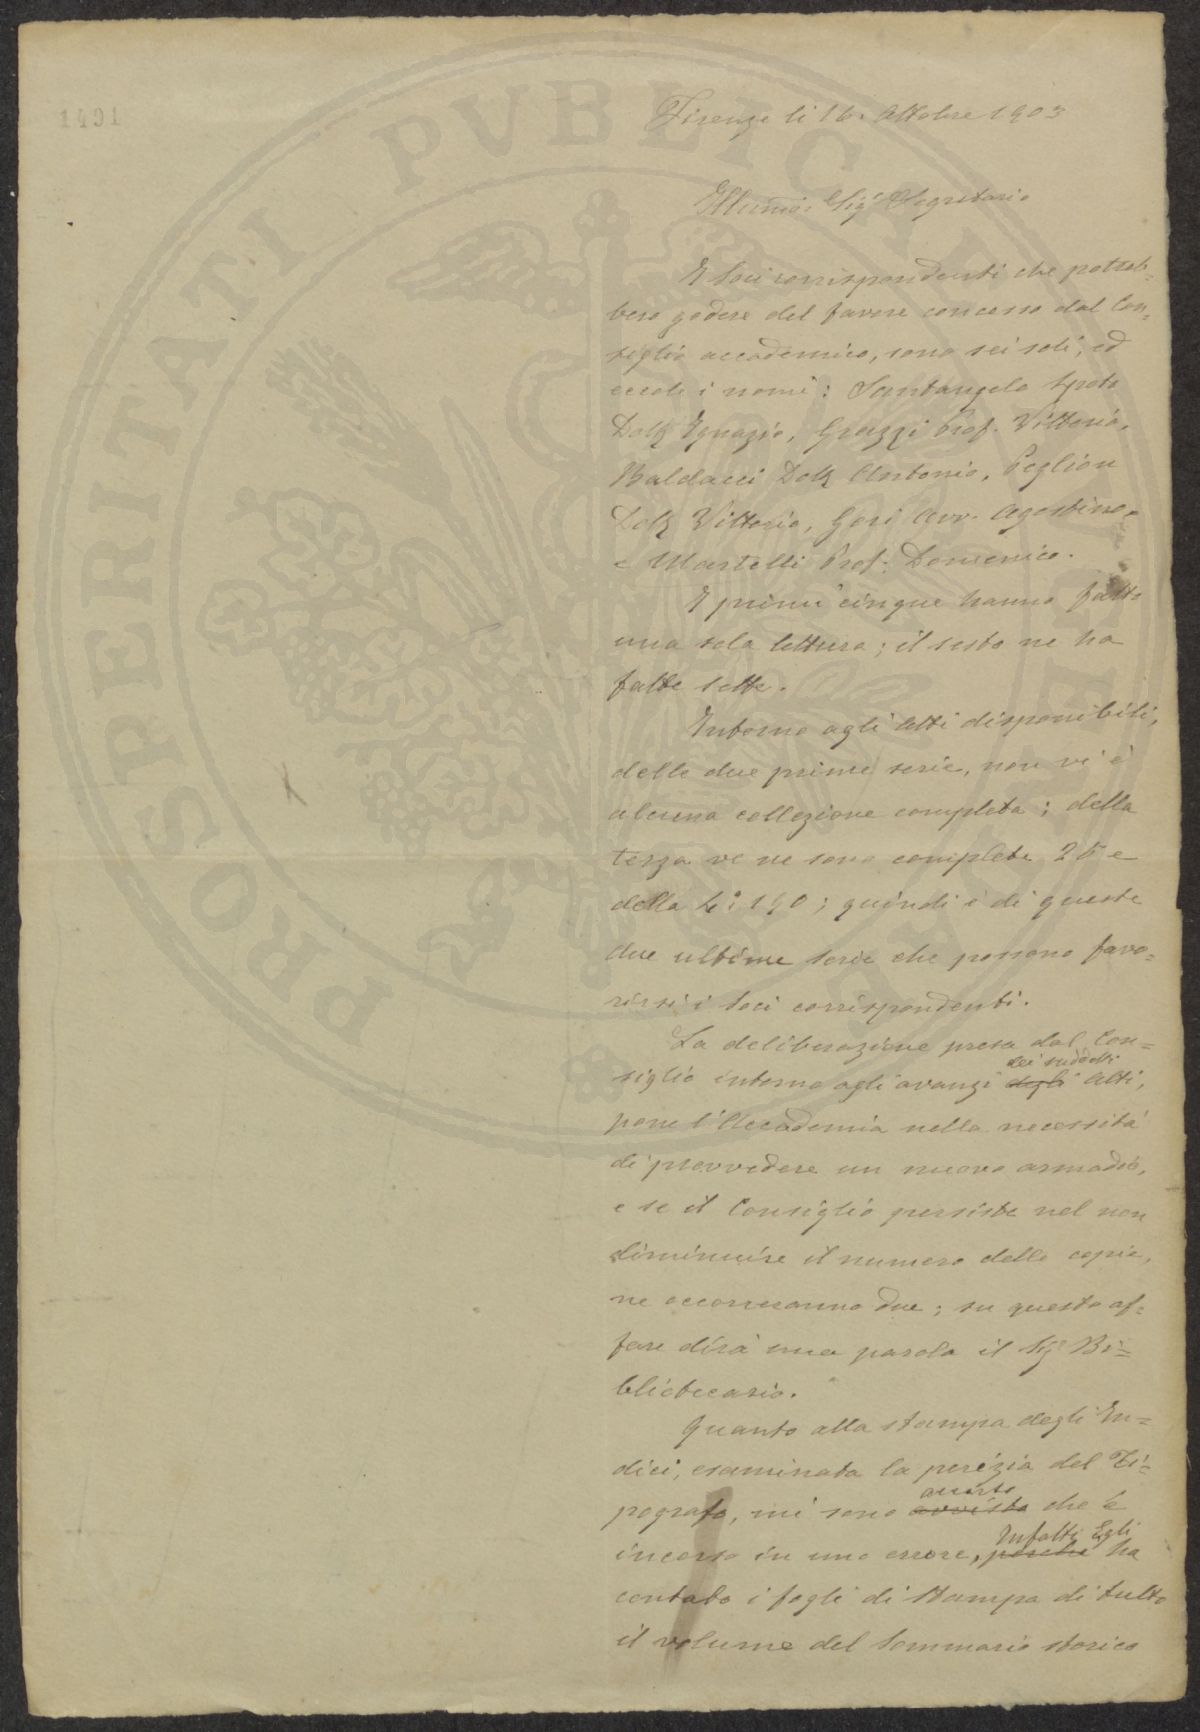 1491
Firenze li 16. Ottobre 1903
Illumo. Sigr Segretario
I Soci corrispondenti che potreb=
bero godere del favore concesso dal Con=
siglio accademico, sono sei soli, ed
eccole i nomi: Santangelo Spoto
Dott Ignazio, Grazzi Prof. Vittorio,
Baldacci Dott Antonio, Peglion
Dott Vittorio, Gori Avv. Agostino,
e Martelli Prof. Domenico.
I primi cinque hanno fatto
una sola lettura; il sesto ne ha
fatte sette.
Intorno agli Atti disponibili,
delle due prime serie, non vi è
alcuna collezione completa; della
terza ve ne sono complete 25 e
della 4a 190; quindi è di queste
due ultime serie che possono favo=
rirsi i Soci corrispondenti.
La deliberazione presa dal Con=
dei suddetti
siglio intorno agli avanzi degli Atti,
pone l'Accademia nella necessità
di provvedere un nuovo armadio,
e se il Consiglio persiste nel non
diminuire il numero delle copie,
ne occorreranno due; su questo af=
fare dirà una parola il Sigr Bi=
bliotecario.
Quanto alla stampa degli In=
dici, esaminata la perizia del Ti=
accorto
pografo, mi sono avvisto che è
Infatti Egli
incorso in uno errore, perchè ha
contato i fogli di stampa di tutto
il volume del Sommario storico
PROSPERITATI PVBLICAE